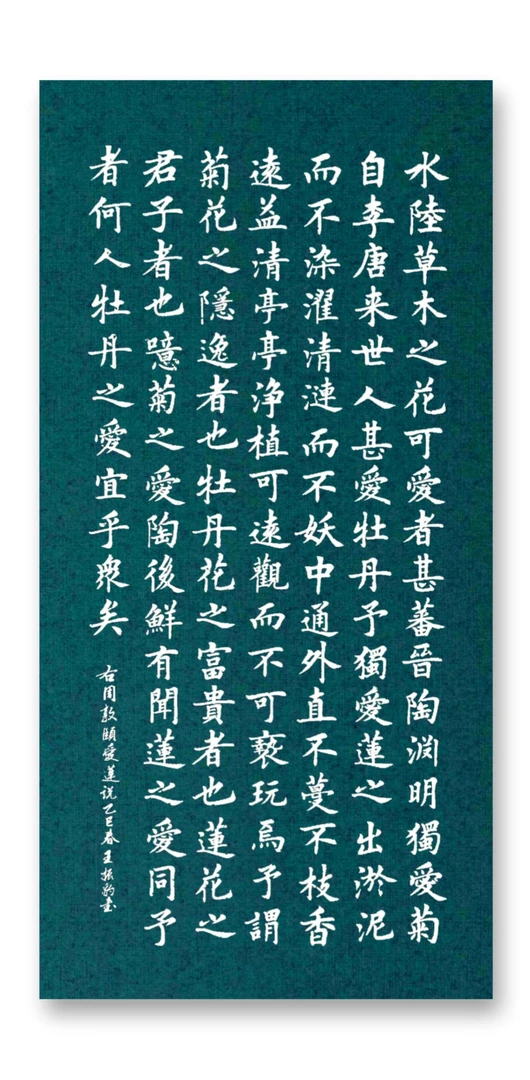 水陸草木之花可愛者甚蕃晉陶淵明獨愛菊
自李唐来世人甚愛牡丹予獨愛蓮之出淤泥
而不染濯清漣而不妖中通外直不蔓不枝香
遠益清亭亭净植可遠觀而不可褻玩焉予謂
菊花之隱逸者也牡丹花之富貴者也蓮花之
君子者也噫菊之愛陶後鮮有聞蓮之愛同予
者何人牡丹之愛宜乎衆矣
右周敦頤愛蓮説乙巳春王振書